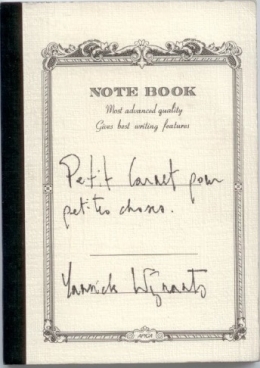 NOTE BOOK
Most advanced quality
Gives best writing features
Petit Carnet pour
petites choses.
Yannick Wijnants
APICA